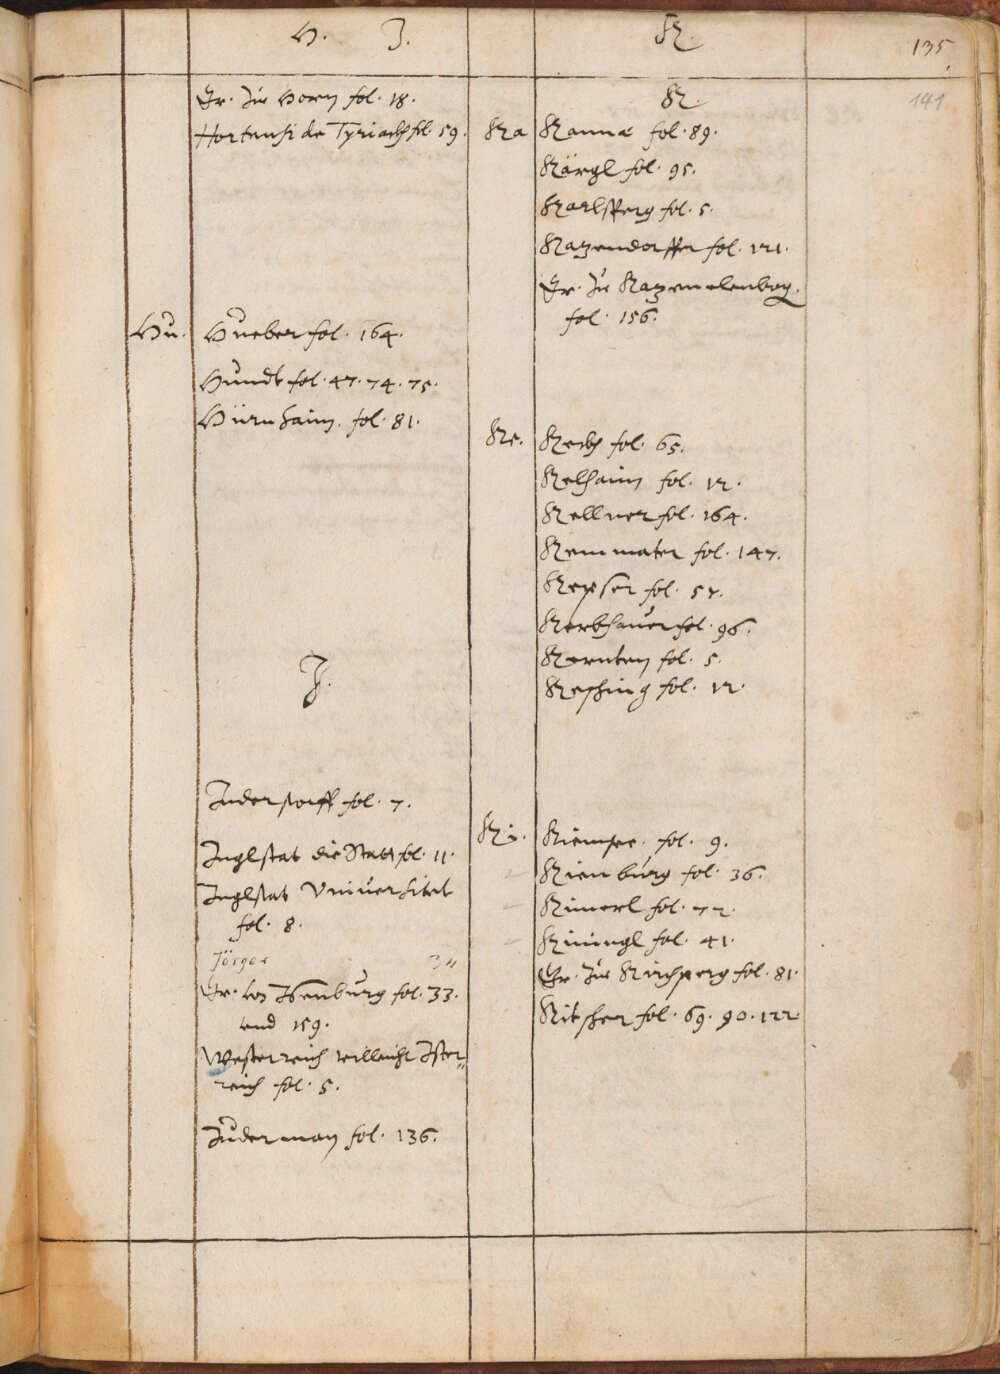 H. J.
K
135
141
Gr. Zu Horn fol. 18.
Hortensi de Tyriach fol. 59.
Hu. Hueber fol. 164.
Hundt fol. 47. 74. 75.
Hürnhaim. fol. 81.
J.
Inderstorff fol. 7.
Inglstat die Statt fol. 11.
Inglstat Universitet
fol. 8.
Jörger 34
Gr. von Isenburg fol. 33.
und 159.
Westerreich villeicht Ister„
reich fol. 5.
Juderman fol. 136.
K.
Ka Kanna fol. 89.
Kärgl fol. 95.
Karlsperg fol. 5.
Kazendorffer fol. 121.
Gr. Zu Kazenelenbog.
fol. 156.
Ke. Kech fol. 65.
Kelhaim fol. 12.
Kellner fol. 164.
Kemmater fol. 147.
Kepser fol. 57.
fol. 96.
Kernten fol. 5.
Kesching fol. 12.
Ki. Kiemsee. fol. 9.
Kienburg fol. 36.
Kimerl fol. 72.
Kiningl fol. 41.
Gr. Zu Kirchperg fol. 81.
Kitscher fol. 69. 90. 122